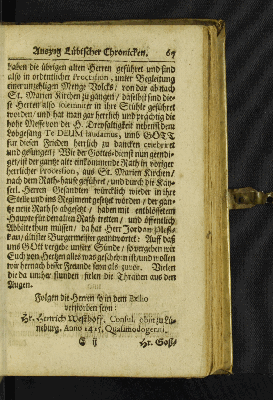 Auszug Lübischer Chronicken. 67
haben die übrigen alten Herren geführet und sind
also in ordentlicher Procession, unter Begleitung
einer unzehligen Menge Volcks / von dar ab nach
St. Marien Kirchen zu gangen / daselbst sind die-
se Herren also solenniter in ihre Stühle geführet
worden / und hat man gar herrlich und prächtig die
hohe Messe von der H. Dreyfaltigkeit nebenst dem
Lobgesang Te DEUM laudamus, umb GOTT
für diesen Frieden herrlich zu dancken celebriret
und gesungen; Wie der Gottes-dienst nun geendi-
get / ist der gantze alte einkommende Rath in voriger
herrlicher Procession, aus St. Marien Kirchen /
nach dem Rath-hause geführet / und durch die Käy-
serl. Herren Gesandten würcklich wieder in ihre
Stelle und ins Regiment gesetzet worden / der gan-
tze neue Rath so abgesetzt / haben mit entblößetem
Haupte für den alten Rath tretten / und öffentlich
Abbitte thun müssen / da hat Herr Jordan Pleß-
kau / ältster Burgermeister geantwortet: Auff daß
uns GOtt vergebe unsere Sünde / so vergeben wir
Euch von Hertzen alles was geschehen ist / und wollen
nur hernach besser Freunde seyn als zuvor. Vielen
die da umher stunden / fielen die Thränen aus den
Augen.
Folgen die Herren so in dem Exilio
verstorben seyn:
Hr. Henrich Westhoff, Consul, obiit zu Lü-
neburg, Anno 1415. Quasimodogeniti.
E ij Hr. Goß-